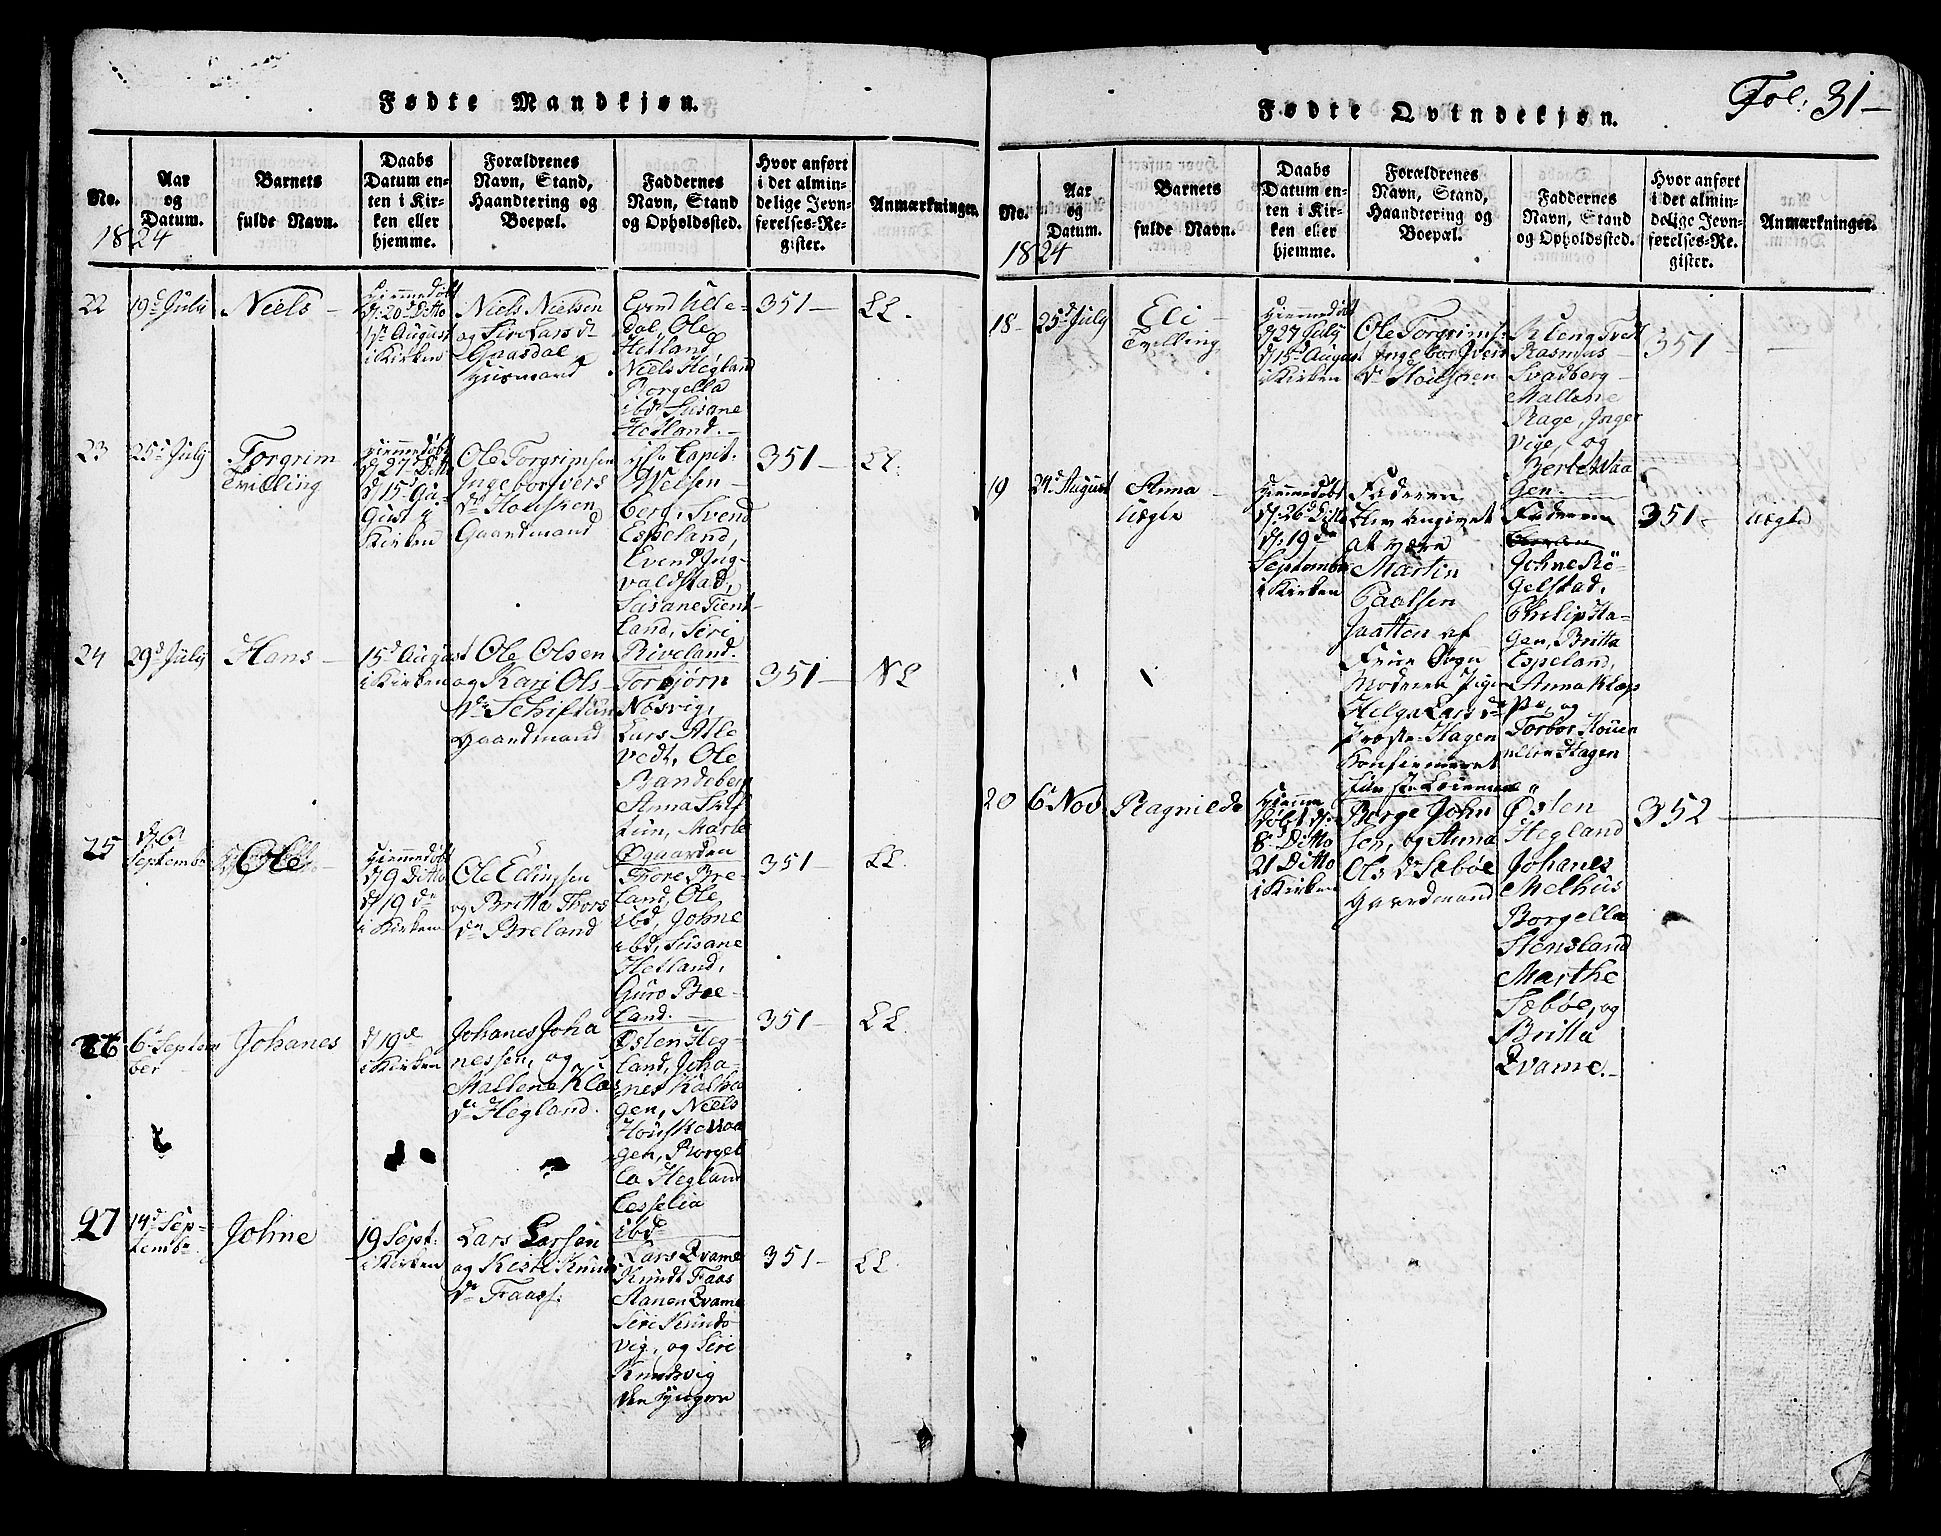 Fol: 31-
Fødte Mandkjøn.
No.
Aar
og
Datum.
Barnets
fulde Navn.
Daabs
Datum en-
ten i Kir-
ken eller
hjemme.
Forældrenes
Navn, Stand,
Haandtering og
Boepæl.
Faddernes
Navn, Stand
og Opholdssted.
Hvor anført
i det almin-
delige Jevn-
førelses-Re-
gister.
Anmærkninger.
1824
22
19d July
Niels -
Hiemmedøbt
d: 20d Ditto
August
i Kirken
Niels Nielsen
og Siri Lars dr
Gaasdal
Huusmand
Evind
dal, Ole
Hetland
Niels Hegland
Borgella
ibd Susane
Hetland. -
351 -
LL.
23
25d July
Torgrim
Tvilling
Hiemmedøbt
d 27d Ditto
d 15d Au-
gust i
Kirken
Ole Torgrimsen
Ingebor Ivers
dr Housken
Gaardmand
Capit:
Welsen-
berg, Svend
Espeland,
Evend Ing-
valdstad,
Susane Tient-
land, Siri
Riveland.
351 -
LL.
24
29d July
Hans -
15d August
i Kirken
Ole Olsen
og Kari Ols
dr Schiftun
Gaardmand
Torbjørn
Nosvig,
Lars Atle
vedt, Ole
Randeberg
Anna Skif
tun, Marte
Øgaarden
351 -
NL
25
d 6
Septembr
Ole
Hiemmedøbt
d 9 Ditto
d 19 dr
i Kirken
Ole Edingsen
og Britta Thors
dr Breland
Thore Bre-
land, Ole
ibd, Johne
ibd, Susane
Hetland,
Guro Bre-
land. -
351 -
LL.
26
6d Septem
ber
Johanes
d 19d
i Kirken
Johanes Joha
nessen, og
Mallena Klas
dr Hegland.
Østen Heg-
land, Joha-
nes Kalha
gen, Niels
Houske
gen, Borgel
la Hegland
Cesselia
ibd
351 -
LL.
27
14d Sep-
tembr
Johne
19 Sept:
i Kirken
Lars Larsen
og Kesti Knuds
dr Fraas
Lars Qvame
Knudt Faas
Stanen Qvame
Siri Knuds
vig, og Siri
Knudsvig
den yngere
351 -
LL.
Fødte Qvindekjøn.
No.
Aar
og
Datum.
Barnets
fulde Navn.
Daabs
Datum en-
ten i Kir-
ken eller
hjemme.
Forældrenes
Navn, Stand,
Haandtering og
Boepæl.
Faddernes
Navn, Stand
og Opholdssted.
Hvor anført
i det almin-
delige Jevn-
førelses-Re-
gister.
Anmærkninger.
1824
18 -
25d July
Eli -
Tvilling
Hiemmedøbt
d 27 July
d 15d August
i Kirken
Ole Torgrims:
Ingebor Ivers
dr Houschen
Kleng Tvet
Rasmus
Svadberg -
Mallene
Rage, Inger
Vige, og
Berte Waa
gen. -
351
-
19
24d August
Anna -
Uægte
Hiemmedøbt
d: 26d Ditto
d: 19de
September
i Kirken
Faderen
blev angivet
at være
Martin
Paalsen
Jaatten af
Frue Sogn
Moderen Pige
Helga Lars dr
Hagen
Konfirmeret
Faderen
Johne Rø-
gelstad,
Philip Ha-
gen, Britta
Espeland,
Anna Klop
og
Torbor Houen
Hagen
351 -
Uægte
20
6d Nov
Ragnilda
Hiemme
døbt d:
8d Ditto
21 Ditto
i Kirken
Børge John
sen, og Anna
Ols dr Sæbøe
Gaardmand
Østen
Hegland
Johanes
Melhus
Borgella
Stensland
Marthe
Sæbøe, og
Britta
Qvame. -
352